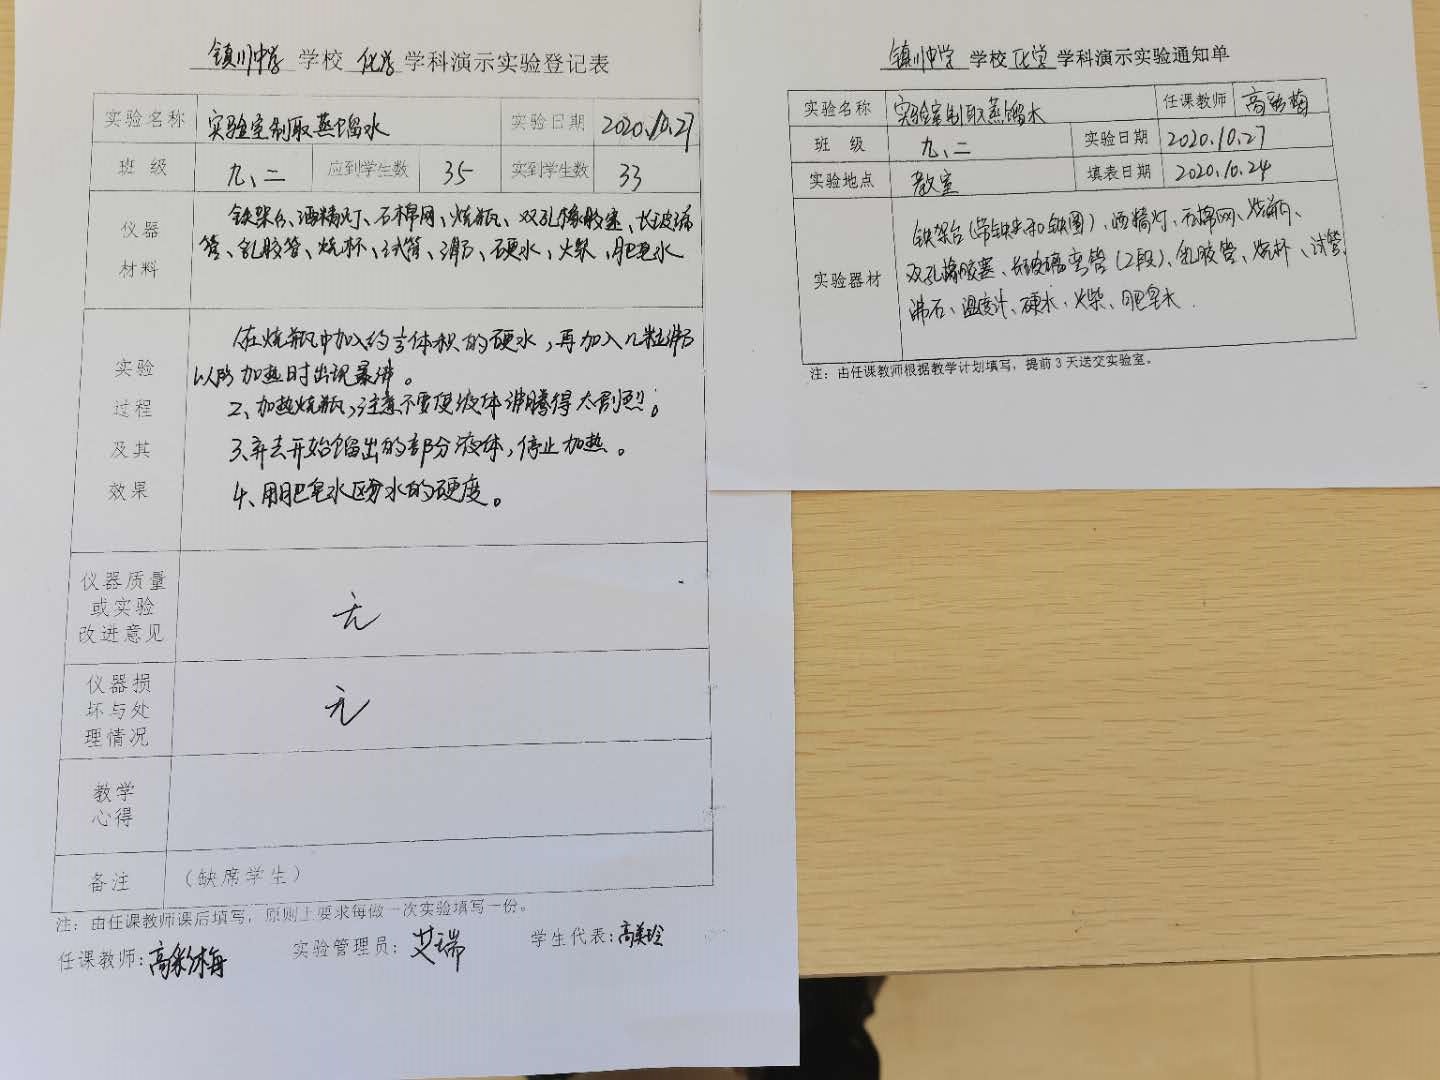 镇川中学 学校 化学 学科演示实验登记表
实验名称 实验室制取蒸馏水 实验日期 2020.10.27
班 级 九、二 应到学生数 35 实到学生数 33
仪器
材料
铁架台、酒精灯、石棉网、烧瓶、双孔橡胶塞、长玻璃
管、乳胶管、烧杯、试管、沸石、硬水、火柴、肥皂水
实验
过程
及其
效果
在烧瓶中加入约1/3体积的硬水,再加入几粒沸石
以防加热时出现暴沸。
2、加热烧瓶,注意不要使液体沸腾得太剧烈;
3、弃去开始馏出的部分液体,停止加热。
4、用肥皂水区分水的硬度。
仪器质量
或实验
改进意见
无
仪器损
坏与处
理情况
无
教学
心得
备注 (缺席学生)
注:由任课教师课后填写,原则上要求每做一次实验填写一份。
任课教师:高彩梅 实验管理员:艾瑞 学生代表:高美玲
镇川中学 学校 化学 学科演示实验通知单
实验名称 实验室制取蒸馏水 任课教师 高彩梅
班 级 九、二 实验日期 2020.10.27
实验地点 教室 填表日期 2020.10.24
实验器材
铁架台(带铁夹和铁圈)、酒精灯、石棉网、烧瓶、
双孔橡胶塞、长玻璃弯管(2段)、乳胶管、烧杯、试管、
沸石、温度计、硬水、火柴、肥皂水.
注:由任课教师根据教学计划填写,提前3天送交实验室。